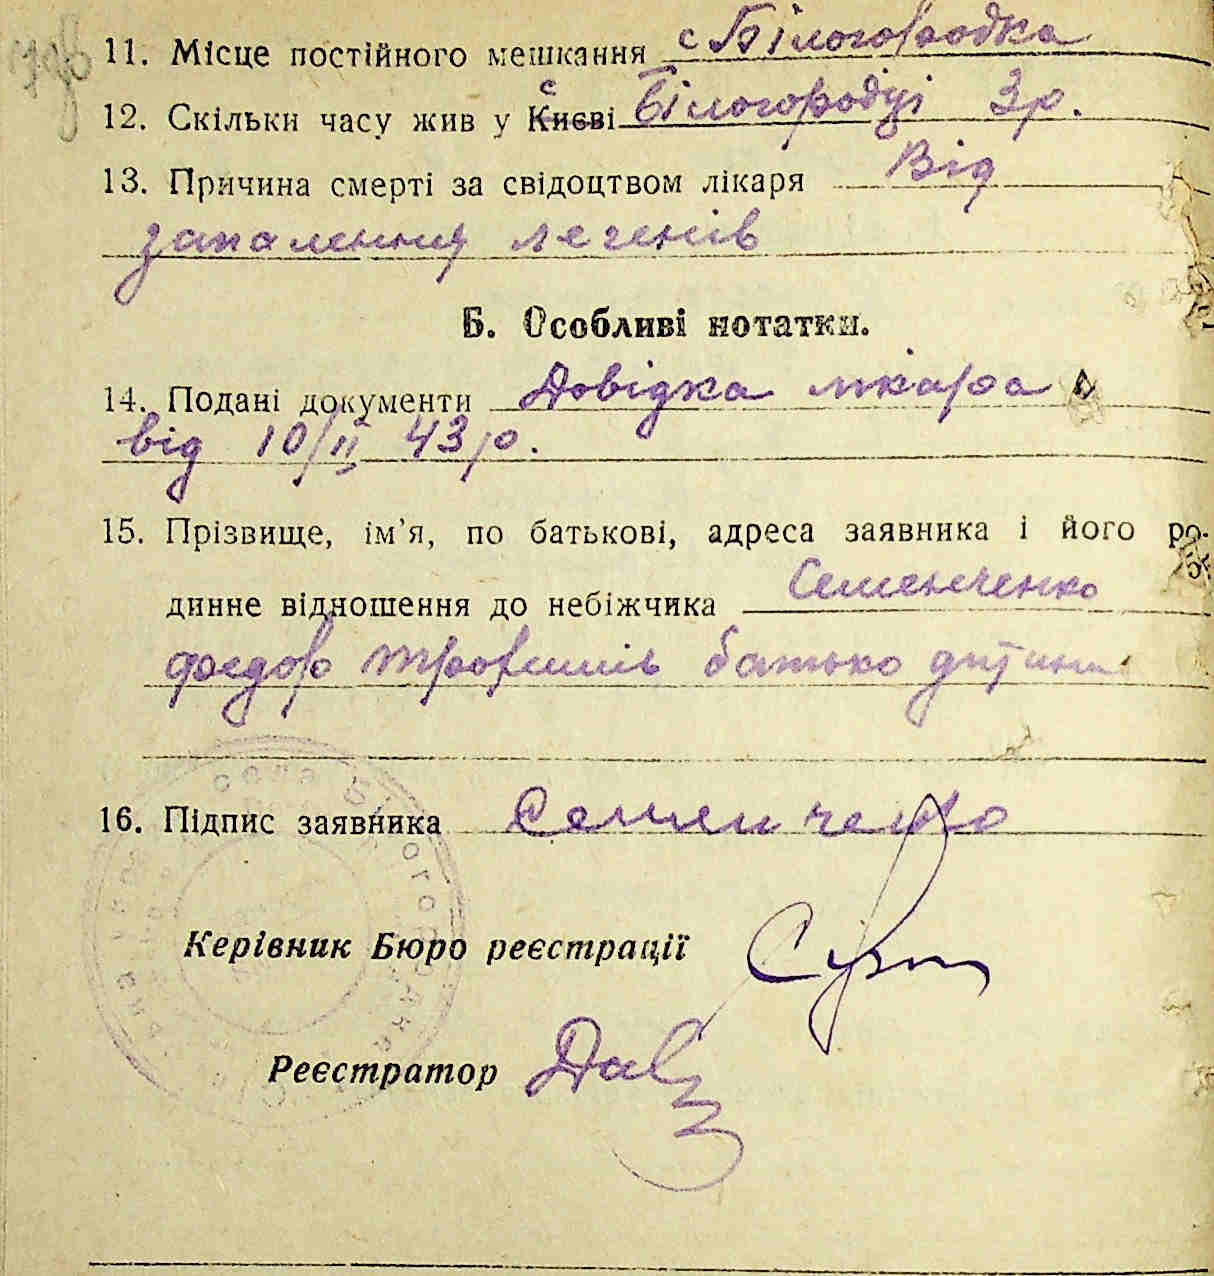 11. Місце постійного мешкання с Білогородка
12. Скільки часу жив у Києві с Білогородці 3 р.
13. Причина смерті за свідоцтвом лікаря Від
запалення легенів
Б. Особливі нотатки.
14. Подані документи Довідка лікара
від 10/II 43 р.
15. Прізвище, ім'я, по батькові, адреса заявника і його ро-
динне відношення до небіжчика Семенченко
Федор Трофимів батько дитини
16. Підпис заявника Семенченко
Керівник Бюро реєстрації
Реєстратор
села Білогородка